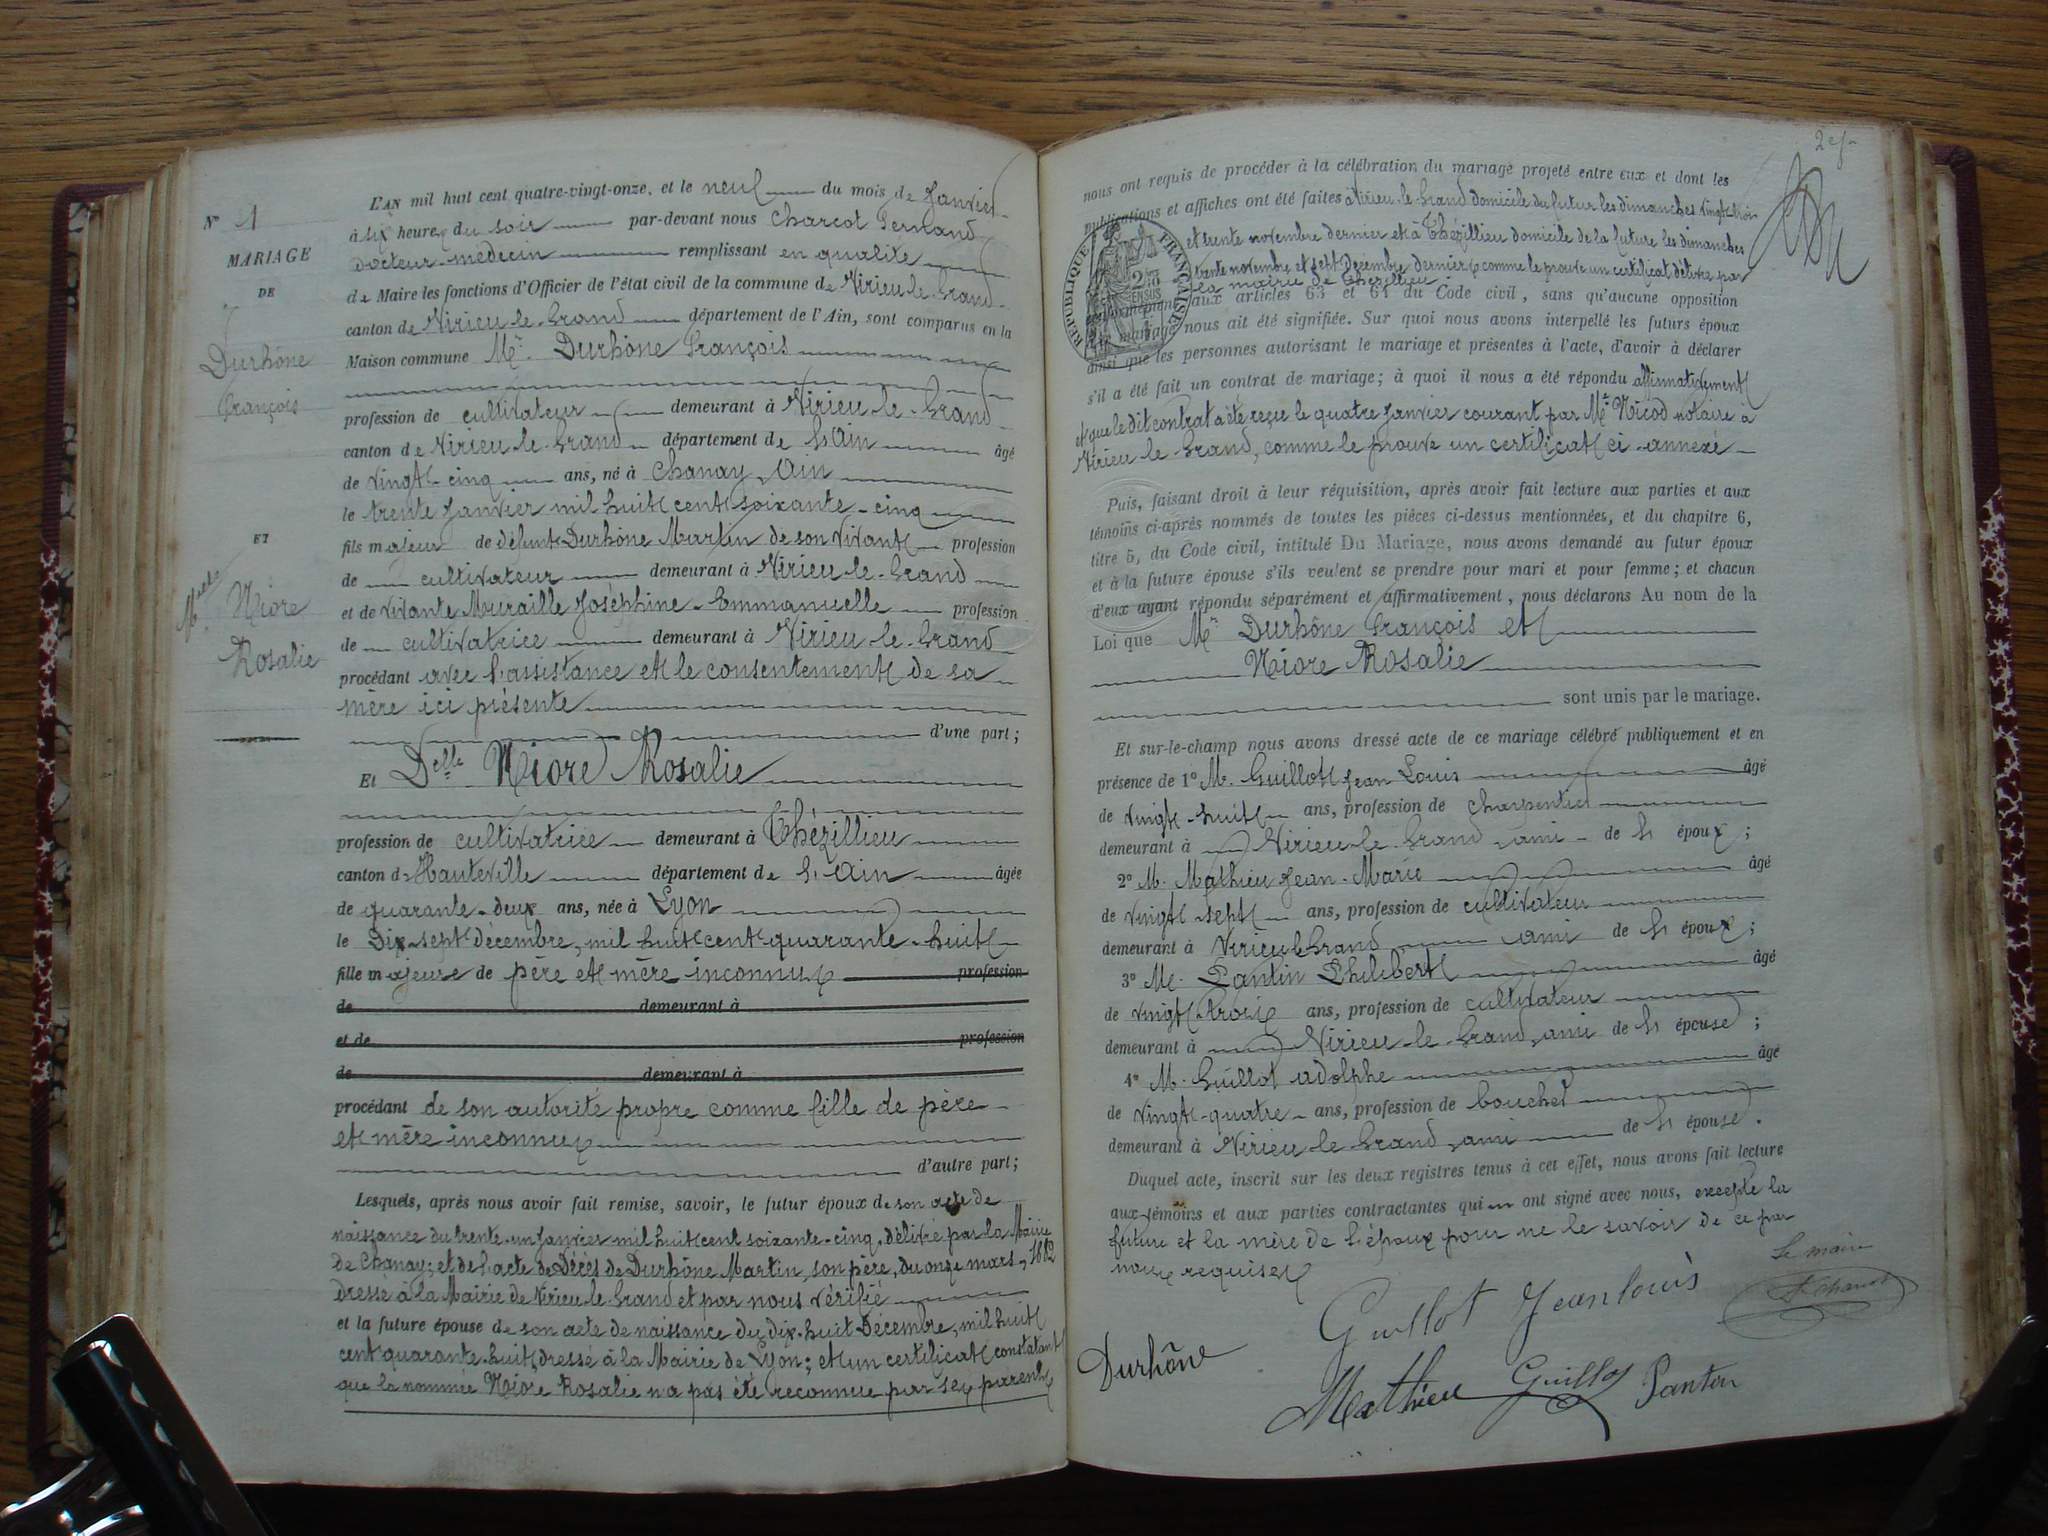 N° 1
MARIAGE
DE
Durhône
François
ET
Melle Niore
Rosalie
L'AN mil huit cent quatre-vingt-onze, et le neuf du mois de Janvier
à six heures du soir par-devant nous Charcot Fernand
docteur-médecin remplissant en qualité
de Maire les fonctions d'Officier de l'état civil de la commune de Virieu-le-Grand
canton de Virieu-le-Grand département de l'Ain, sont comparus en la
Maison commune Mr. Durhône François
profession de cultivateur demeurant à Virieu-le-Grand
canton de Virieu-le-Grand département de l'Ain âgé
de vingt-cinq ans, né à Chanay, Ain
le trente Janvier mil huit cent soixante-cinq
fils majeur de défunt Durhône Martin de son vivant profession
de cultivateur demeurant à Virieu-le-Grand
et de vivante Muraille Joséphine-Emmanuelle profession
de cultivatrice demeurant à Virieu-le-Grand
procédant avec l'assistance et le consentement de sa
mère ici présente
d'une part;
Et Delle Niore Rosalie
profession de cultivatrice demeurant à Thézillieu
canton d'Hauteville département de l'Ain âgée
de quarante-deux ans, née à Lyon
le Dix-sept décembre, mil huit cent quarante-huit
fille majeure de père et mère inconnus profession
de demeurant à
et de profession
de demeurant à
procédant de son autorité propre comme fille de père
et mère inconnus
d'autre part;
Lesquels, après nous avoir fait remise, savoir, le futur époux de son acte de
naissance du trente-un Janvier mil huit cent soixante-cinq, délivré par la Mairie
de Chanay; et de l'acte de Décès de Durhône Martin, son père, du onze mars, 1882
dressé à la Mairie de Virieu-le-Grand et par nous vérifié
et la future épouse de son acte de naissance du dix-huit Décembre, mil huit
cent quarante-huit dressé à la Mairie de Lyon; et un certificat constatant
que la nommée Niore Rosalie n'a pas été reconnue par ses parents
nous ont requis de procéder à la célébration du mariage projeté entre eux et dont les
publications et affiches ont été faites à Virieu-le-Grand domicile du futur les dimanches vingt-trois
et trente novembre dernier et à Thézillieu domicile de la future les dimanches
trente novembre et sept Décembre dernier, comme le prouve un certificat délivré par
la mairie de Thézillieu
RÉPUBLIQUE FRANÇAISE
conformément aux articles 63 et 64 du Code civil, sans qu'aucune opposition
au mariage nous ait été signifiée. Sur quoi nous avons interpellé les futurs époux
ainsi que les personnes autorisant le mariage et présentes à l'acte, d'avoir à déclarer
s'il a été fait un contrat de mariage; à quoi il nous a été répondu affirmativement
et que le dit contrat a été reçu le quatre Janvier courant par Mt. Nicod notaire à
Virieu-le-Grand, comme le prouve un certificat ci-annexé
Puis, faisant droit à leur réquisition, après avoir fait lecture aux parties et aux
témoins ci-après nommés de toutes les pièces ci-dessus mentionnées, et du chapitre 6,
titre 5, du Code civil, intitulé Du Mariage, nous avons demandé au futur époux
et à la future épouse s'ils veulent se prendre pour mari et pour femme; et chacun
d'eux ayant répondu séparément et affirmativement, nous déclarons Au nom de la
Loi que Mr. Durhône François et
Niore Rosalie
sont unis par le mariage.
Et sur-le-champ nous avons dressé acte de ce mariage célébré publiquement et en
présence de 1° M. Guillot Jean Louis âgé
de vingt-huit ans, profession de charpentier
demeurant à Virieu-le-Grand, ami de l'époux;
2° M. Mathieu Jean-Marie âgé
de vingt-sept ans, profession de cultivateur
demeurant à Virieu le Grand ami de l'époux;
3° M. Pantin Philibert âgé
de vingt-trois ans, profession de cultivateur
demeurant à Virieu-le-Grand, ami de l'épouse;
4° M. Guillot Adolphe âgé
de vingt-quatre ans, profession de boucher
demeurant à Virieu-le-Grand, ami de l'épouse.
Duquel acte, inscrit sur les deux registres tenus à cet effet, nous avons fait lecture
aux témoins et aux parties contractantes qui en ont signé avec nous, excepté la
future et la mère de l'époux pour ne le savoir de ce par
nous requises
Le maire
Guillot Jean louis
Durhône
Mathieu Guillot Pantin